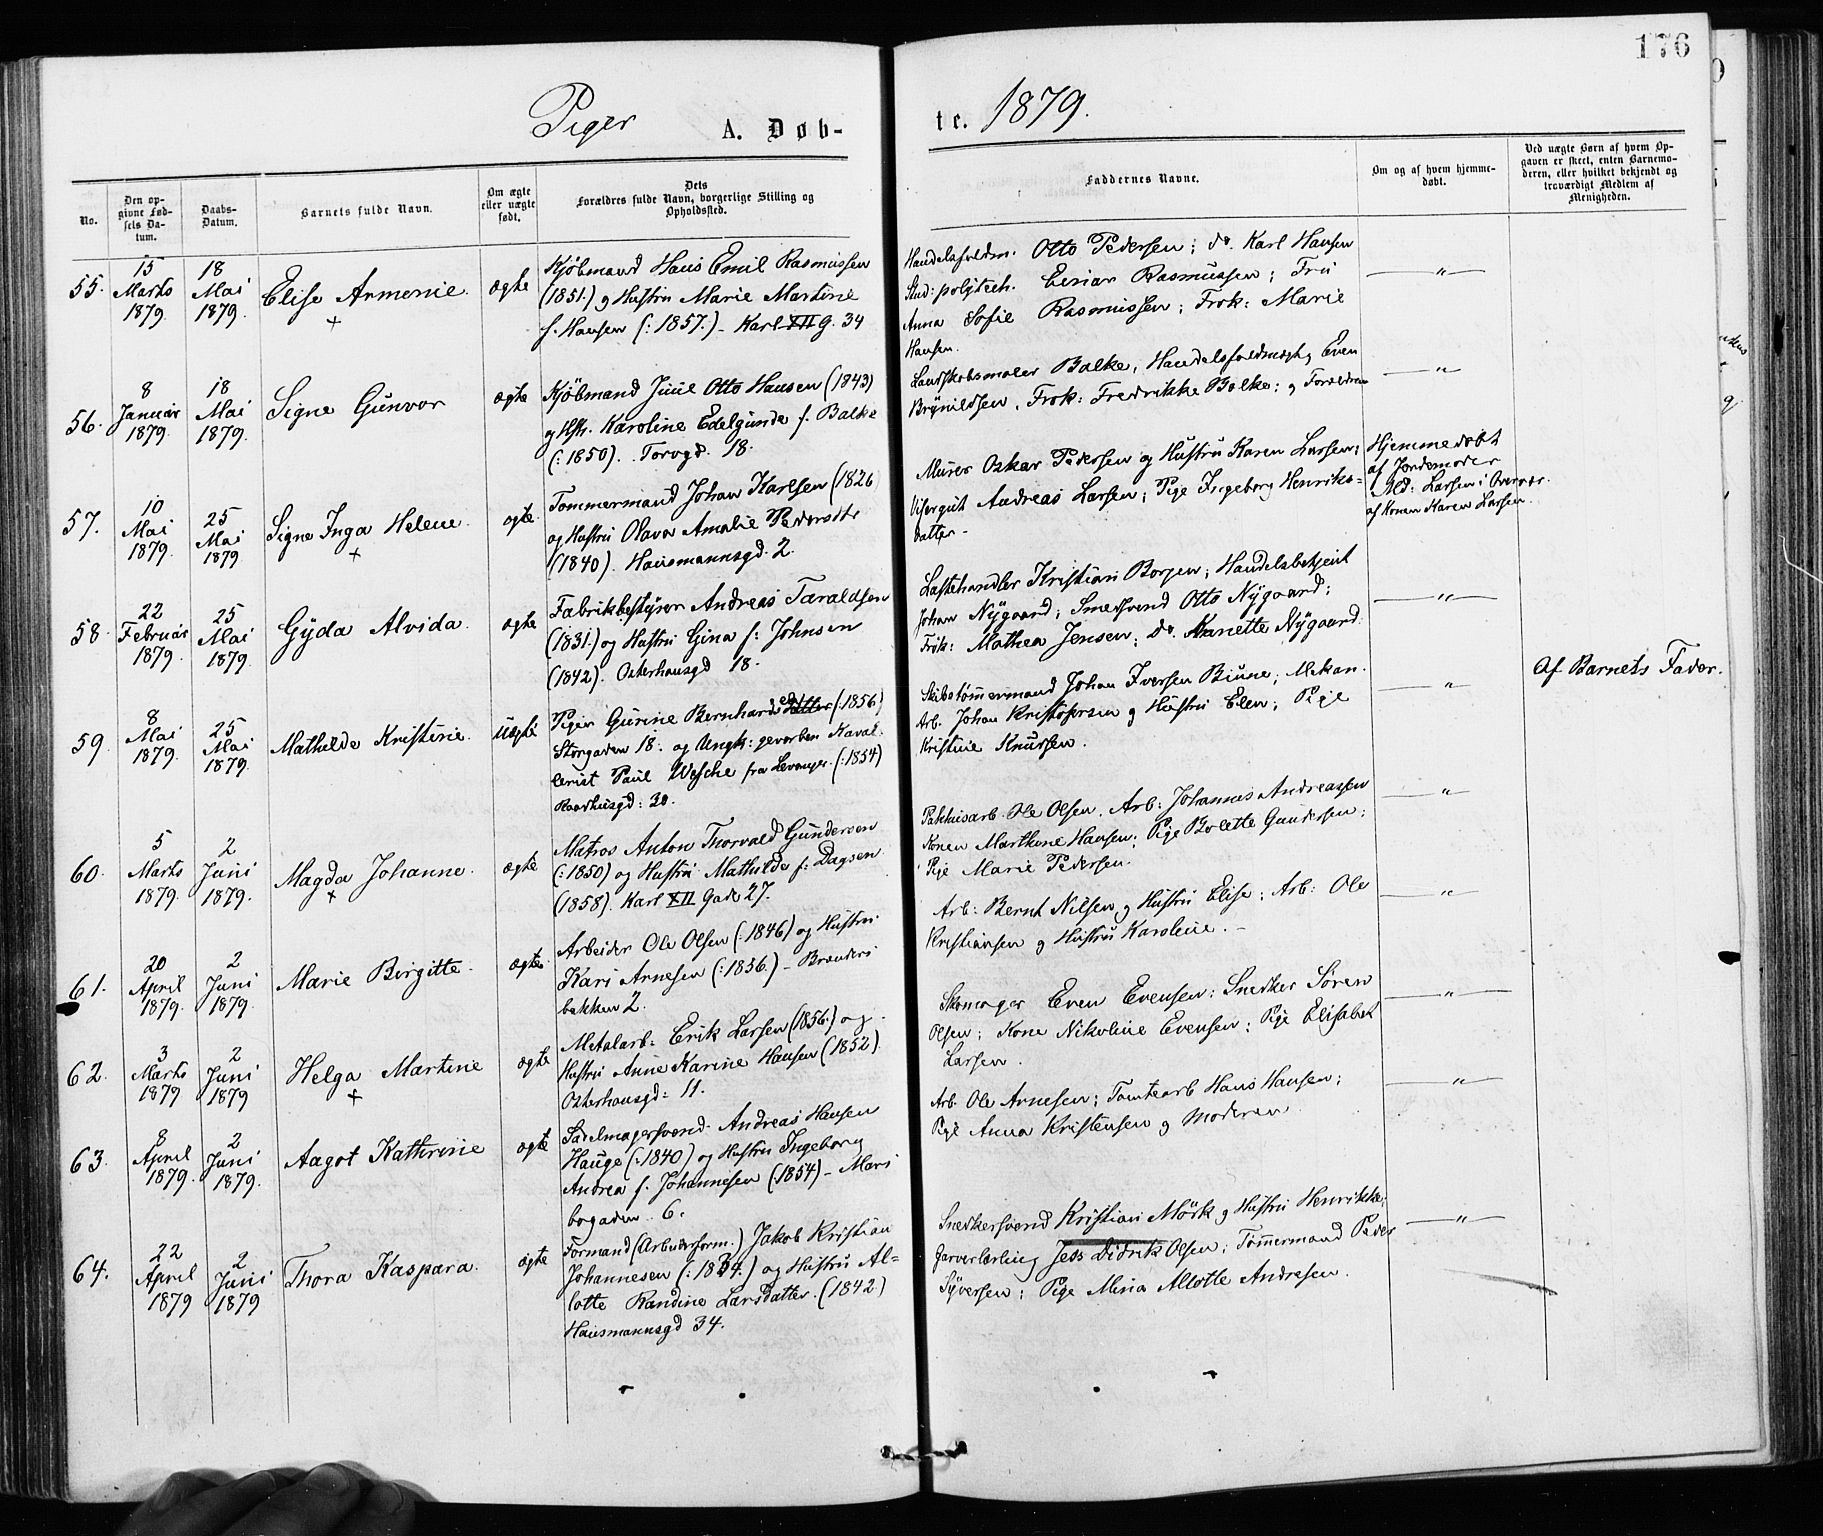 176
Piger A. Døb-
te. 1879.
No.
Den op-
givne Fød-
sels Da-
tum.
Daabs-
Datum.
Barnets fulde Navn.
Om ægte
eller uægte
født.
Dets
Forældres fulde Navn, borgerlige Stilling og
Opholdssted.
Faddernes Navne.
Om og af hvem hjemme-
døbt.
Ved uægte Børn af hvem Op-
gaven er skeet, enten Barnemo-
deren, eller hvilket bekjendt og
troværdigt Medlem af
Menigheden.
55.
15
Marts
1879.
18
Mai
1879.
Elise Armenie
+
ægte
Kjöbmand Hans Emil Rasmussen
(1851.) og Hustru Marie Martine
f. Hansen (:1857.) - Karl XII G. 34
Handelsfuldm. Otto Pedersen; do. Karl Hansen
Stud: polytech. Einar Rasmussen; Fru
Anna Sofie Rasmussen; Frøk: Marie
Hansen.
— " —
56.
8
Januar
1879.
18
Mai
1879.
Signe Gunvor
ægte
Kjöbmand Juul Otto Hansen (1843)
og Hstr. Karoline Edelgunde f. Balke
(:1850). Torvgd. 18.
Landskabsmaler Balke, Handelsfuldmægtig Even
Brynildsen, Frøk: Fredrikke Balke; og Forældrene
— " —
57.
10
Mai
1879.
25
Mai
1879
Signe Inga Helene
+
ægte.
Tømmermand Johan Karlsen (1826
og Hustru Olava Amalie Pedersdtr
(1840). Hausmannsgd. 2.
Murer Oskar Pedersen og Hustru Karen Larsen;
Visergut Andreas Larsen; Pige Ingeborg Henriks-
datter -
Hjemmedøbt
af Jordemoder
Md: Larsen i Overvær
af Konen Karen Larsen.
58.
22
Februar
1879.
25
Mai
1879.
Gyda Alvida.
ægte
Fabrikbestyrer Andreas Taraldsen
(1831.) og Hustru Gina f: Johnsen
(1842). Osterhausgd 18.
Lastehandler Kristian Borgen; Handelsbetjent
Johan Nygaard; Smedsvend Otto Nygaard;
Frøk: Mathea Jensen; Do. Annette Nygaard.
— " —
59.
8
Mai
1879.
25
Mai
1879.
Mathilde Kristine
uægte
Pigen Gurine Bernhardsdatter (:1856)
Storgaden 18. og Ungk: gevorben Kaval-
lerist Paul Wesche fra Levanger. (:1854)
Raadhusgd: 30.
Skibstømmermand Johan Iversen Biune; Mekan.
Arb. Johan Kristofersen og Hustru Elen; Pige
Kristine Knudsen.
"
Af Barnets Fader.
60.
5
Marts
1879.
2
Juni
1879.
Magda Johanne
+
ægte
Matros Anton Thorvald Gundersen
(:1850) og Hustru Mathilda f: Dagsen
(1858). Karl XII Gade 27.
Pakhusarb. Ole Olsen. Arb: Johannes Andreassen
Konen Marthine Hansen; Pige Bolette Gundersen;
Pige Marie Pedersen.
— " —
61.
20
April
1879.
2
Juni
1879.
Marie Birgitte
ægte
Arbeider Ole Olsen (:1846) og Hustru
Kari Arnesen (:1856.) - Brænderi
bakken 2.
Arb: Bernt Nilsen og Hustru Elise; Arb: Ole
Kristiansen og Hustru Karoline.
— " —
62.
3
Marts
1879
2
Juni
1879
Helga Martine
+
ægte
Metalarb: Erik Larsen (1856.) og
Hustru Anne Karine Hansen (1852)
Osterhausgd: 11.
Skomager Even Evensen; Snedker Søren
Olsen; Kone Nikoline Evensen; Pige Elisabet
Larsen.
— " —
63.
8
April
1879.
2
Juni
1879.
Aagot Kathrine
ægte
Sadelmagersvend Andreas Hansen
Hauge (:1840) og Hustru Ingeborg
Andrea f. Johannesen (1854) - Mari
bogaden 6.
Arb. Ole Arnesen; Tomtearb Hans Hansen;
Pige Anna Kristensen og Moderen
— " —
64.
22
April
1879
2
Juni
1879
Thora Kaspara.
ægte
Formand (Arbeidsform.) Jakob Kristian
Johannesen (:1834.) og Hustru Al-
lotte Randine Larsdatter. (1842)
Hausmannsgd 34.
Snedkersvend Kristian Mörk og Hustru Henrikke;
Garverlærling Jess Didrik Olsen; Tømmermand Peder
Syversen; Pige Mina Alotte Andresen.
— " —